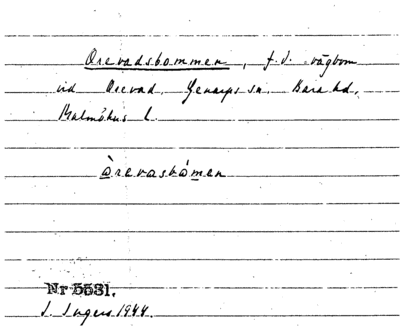 Orevadsbommen, f.d. vägbom
vid Orevad, Genarps sn, Bara hd,
Malmöhus l.
òrevasbómen
Nr 5531.
I. Ingers 1944.